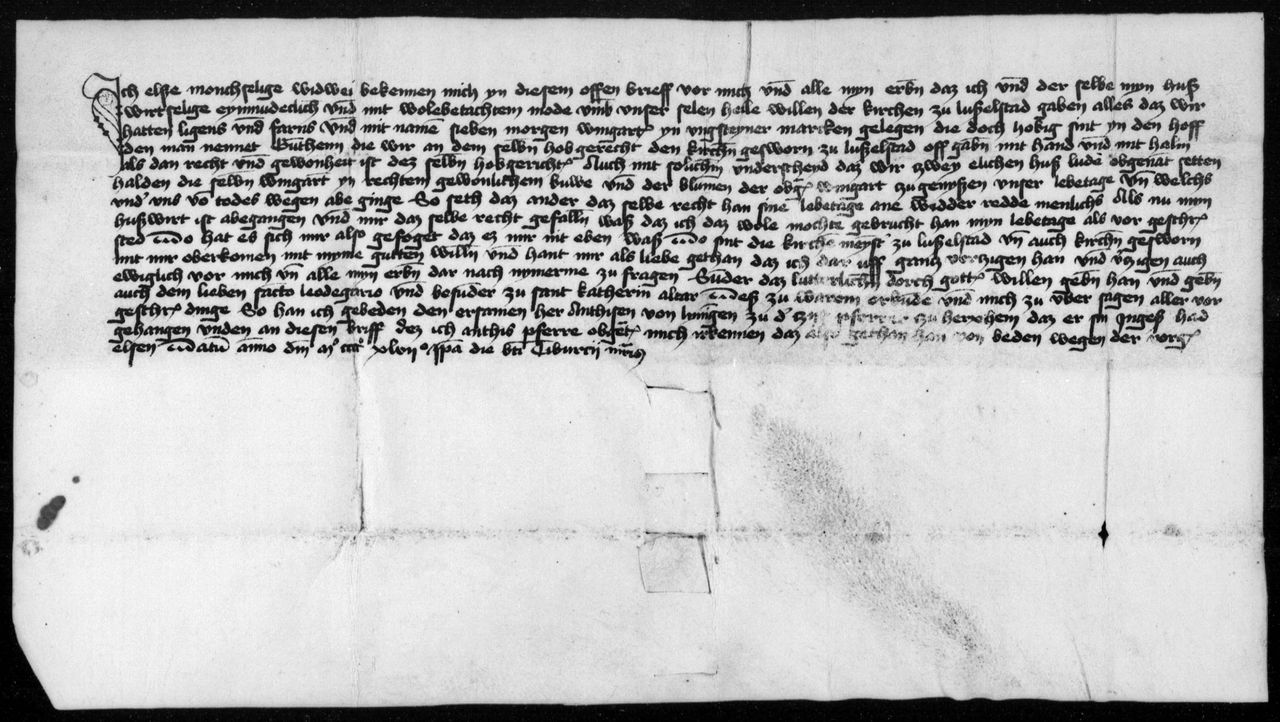 Ich else monchselige widwei bekennen mich yn diesem offen brieff vor mich vnd alle myn erbn daz ich vnd der selbe myn huß
wirt selige eynmudeclich vnd mit wolebetachtem mode vmb vnser selen heile willen der kirchen zu lußelstad gaben alles daz wir
hatten ligens vnd farns vnd mit name sieben morgen wingartꝭ yn vngsteyner marcken gelegen die doch hobig sint yn den hoff
den man nennet die wir an dem selbn hobgerecht den kirchn gesworn zu lußelstad off gabn mit hand vnd mit halm
als dan recht vnd gewonheit ist dez selbn hobgerichtꝭ Auch mit solichm vnderscheyd daz wir zwey elichen huß lude obgenāt setten
halden die selbn wingart yn rechtem gewonlichem buwe vnd der blumen der obgꝭ wingart zu genyßen vnser lebetage vn̄ welchs
vnd' vns vō todes wegen abe ginge So seth daz ander daz selbe recht han sine lebetage ane widder redde menlichs Als nu myn
hußwirt ist abegangen vnd mir daz selbe recht gefalln waß daz ich daz wole mochte gebrucht han myn lebetage als vor geschrꝭ
sted hat es sich mir also gefoget daz ez mir nit eben waß sint die kirchē meystꝰ zu lußelstad vn̄ auch kirchn gesworn
mit mir oberkomen mit myme gutten willn vnd hant mir als liebe gethan daz ich dar uff grancz verzigen han vnd vzigen auch
ewiglich vor mich vn̄ alle myn erbn dar nach nymerme zu fragen Sūder daz lutterlichn dorch gottꝭ willen gebn han vnd gebn
auch dem lieben sācto leodegario vnd besūder zu sant katherin altar zu warem vrkunde vnd mich zu vber sagen aller vor
geschrꝭ dinge So han ich gebeden den ersamen her Anthisen von zu pferrer zu herxhem daz er sin Ingeß had
gehangen vnden an diesen briff dez ich anthis pferre obgetꝭ mich irkennen daz also gethan han von beden wegen der vorgꝭ
elsen Datū anno dm̄ mꝰ ccccꝰ xlvijꝰ ipā die btī Tiburcii mrīs